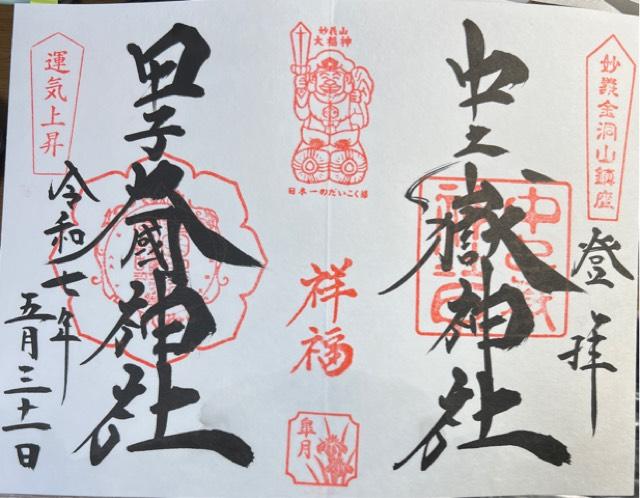 妙義金洞山鎮座
登拝
中之嶽神社
妙義山
大福神
日本一のだいこく様
祥福
皐月
甲子大國神社
運気上昇
令和七年
五月三十一日